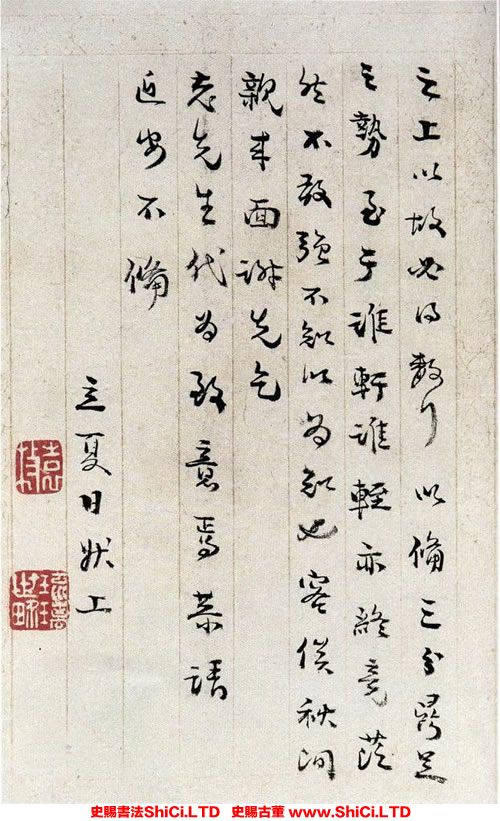 云上以故必得数行以備三分鼎足
之勢至于誰軒誰輊亦終竟茫
然不敢強不知以為知也容俟秋間
親来面謝先乞
老先生代为致意焉恭請
近安不備
立夏日狀上
史賜書法ShiCi.LTD 史賜古董 www.ShiCi.LTD